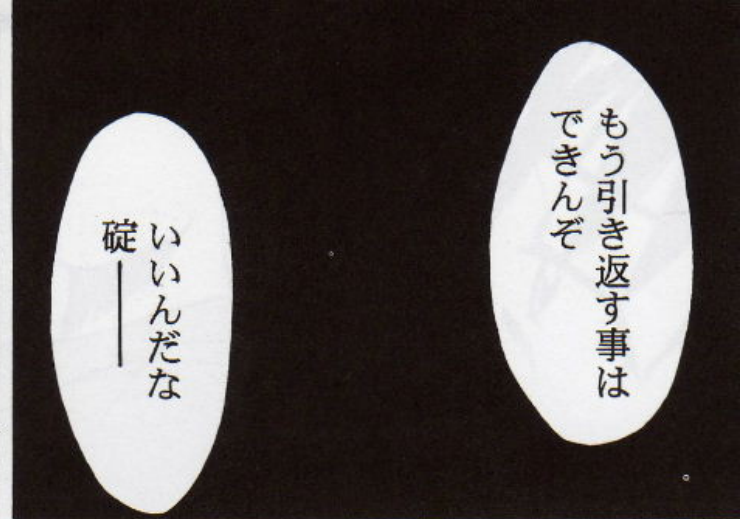 もう引き返す事は
できんぞ
いいんだな
碇――